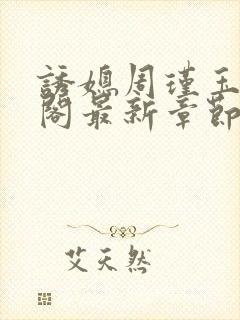 誘媳周瑾玉
閣最新章節
艾天然